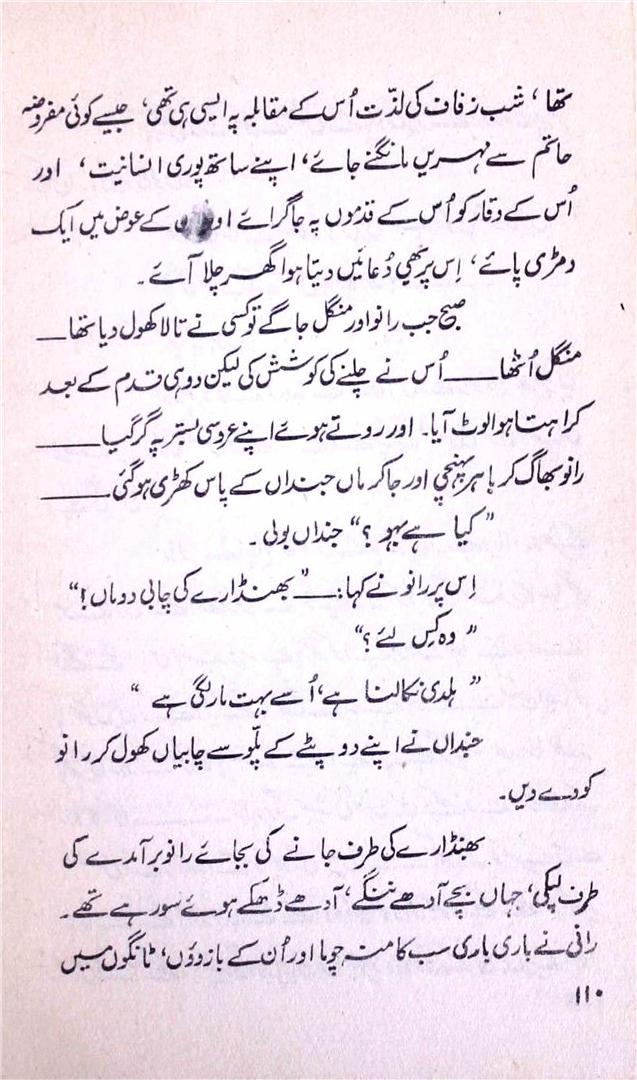 تھا ، شب زفاف کی لذّت اُس کے مقابلہ پہ ایسی ہی تھی، جیسے کوئی مفروضہ
حاتم سے مہریں مانگنے جائے، اپنے ساتھ پوری انسانیت ، اور
اُس کے وقار کو اُس کے قدموں پہ جا گرائے اور کے عوض میں ایک
دمڑی پائے، اِس پر بھی دُعائیں دیتا ہوا گھر چلا آئے ۔
صبح جب رانو اور منگل جاگے تو کسی نے تالا کھول دیا تھا ——
منگل اُٹھا —— اُس نے چلنے کی کوشش کی لیکن دو ہی قدم کے بعد
کراہتا ہوا لوٹ آیا۔ اور روتے ہوئے اپنے عروسی بستر پہ گر گیا ——
رانو بھاگ کر باہر پہنچی اور جا کر ماں جنداں کے پاس کھڑی ہو گئی ——
” کیا ہے بہو ؟“ جنداں بولی ۔
اِس پر رانو نے کہا : — ” بھنڈارے کی چابی دو ماں !“
” وہ کِس لئے ؟“
” ہلدی نکالنا ہے، اُسے بہت مار لگی ہے “
جنداں نے اپنے دوپٹے کے پلّو سے چابیاں کھول کر رانو
کو دے دیں۔
بھنڈارے کی طرف جانے کی بجائے رانو برآمدے کی
طرف لپکی، جہاں بچے آدھے ننگے، آدھے ڈھکے ہوئے سو رہے تھے ۔
رانی نے باری باری سب کا منہ چوما اور اُن کے بازوؤں، ٹانگوں میں
۱۱۰